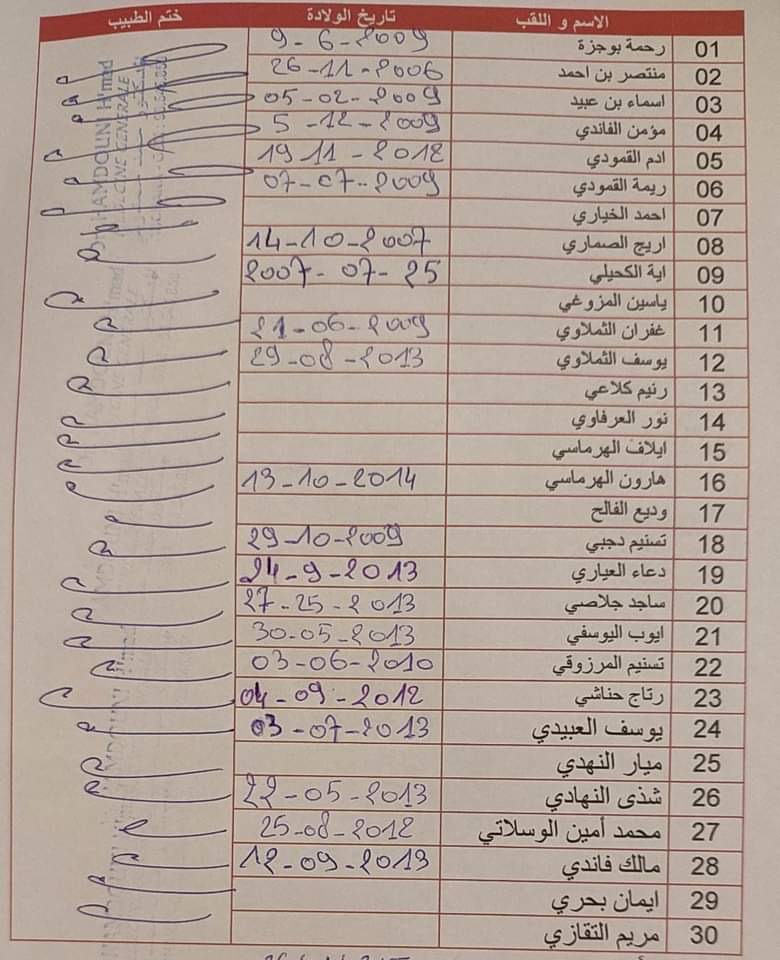 الاسم و اللقب تاريخ الولادة ختم الطبيب
01 رحمة بوجزة 9-6-2009
02 منتصر بن احمد 26-11-2006
03 اسماء بن عبيد 05-02-2009
04 مؤمن الفاندي 5-12-2009
05 ادم القمودي 19 11-2012
06 ريمة القمودي 07-07-2009
07 احمد الخياري
08 اريج الصماري 14-10-2007
09 اية الكحيلي 2007-07-25
10 ياسين المزوغي
11 غفران الثملاوي 21-06-2009
12 يوسف الثملاوي 29-08-2013
13 رنيم كلاعي
14 نور العرفاوي
15 ايلاف الهرماسي
16 هارون الهرماسي 13-10-2014
17 وديع الفالح
18 تسنيم دجبي 29-10-2009
19 دعاء العياري 24-9-2013
20 ساجد جلاصي 27-25-2013
21 ايوب اليوسفي 30-05-2013
22 تسنيم المرزوقي 03-06-2010
23 رتاج حناشي 04-09-2012
24 يوسف العبيدي 03-07-2013
25 ميار النهدي
26 شذى النهادي 22-05-2013
27 محمد أمين الوسلاتي 25-08-2012
28 مالك فاندي 12-09-2013
29 ايمان بحري
30 مريم التقازي
HAMDOUNI H'med
MEDECINE GENERALE